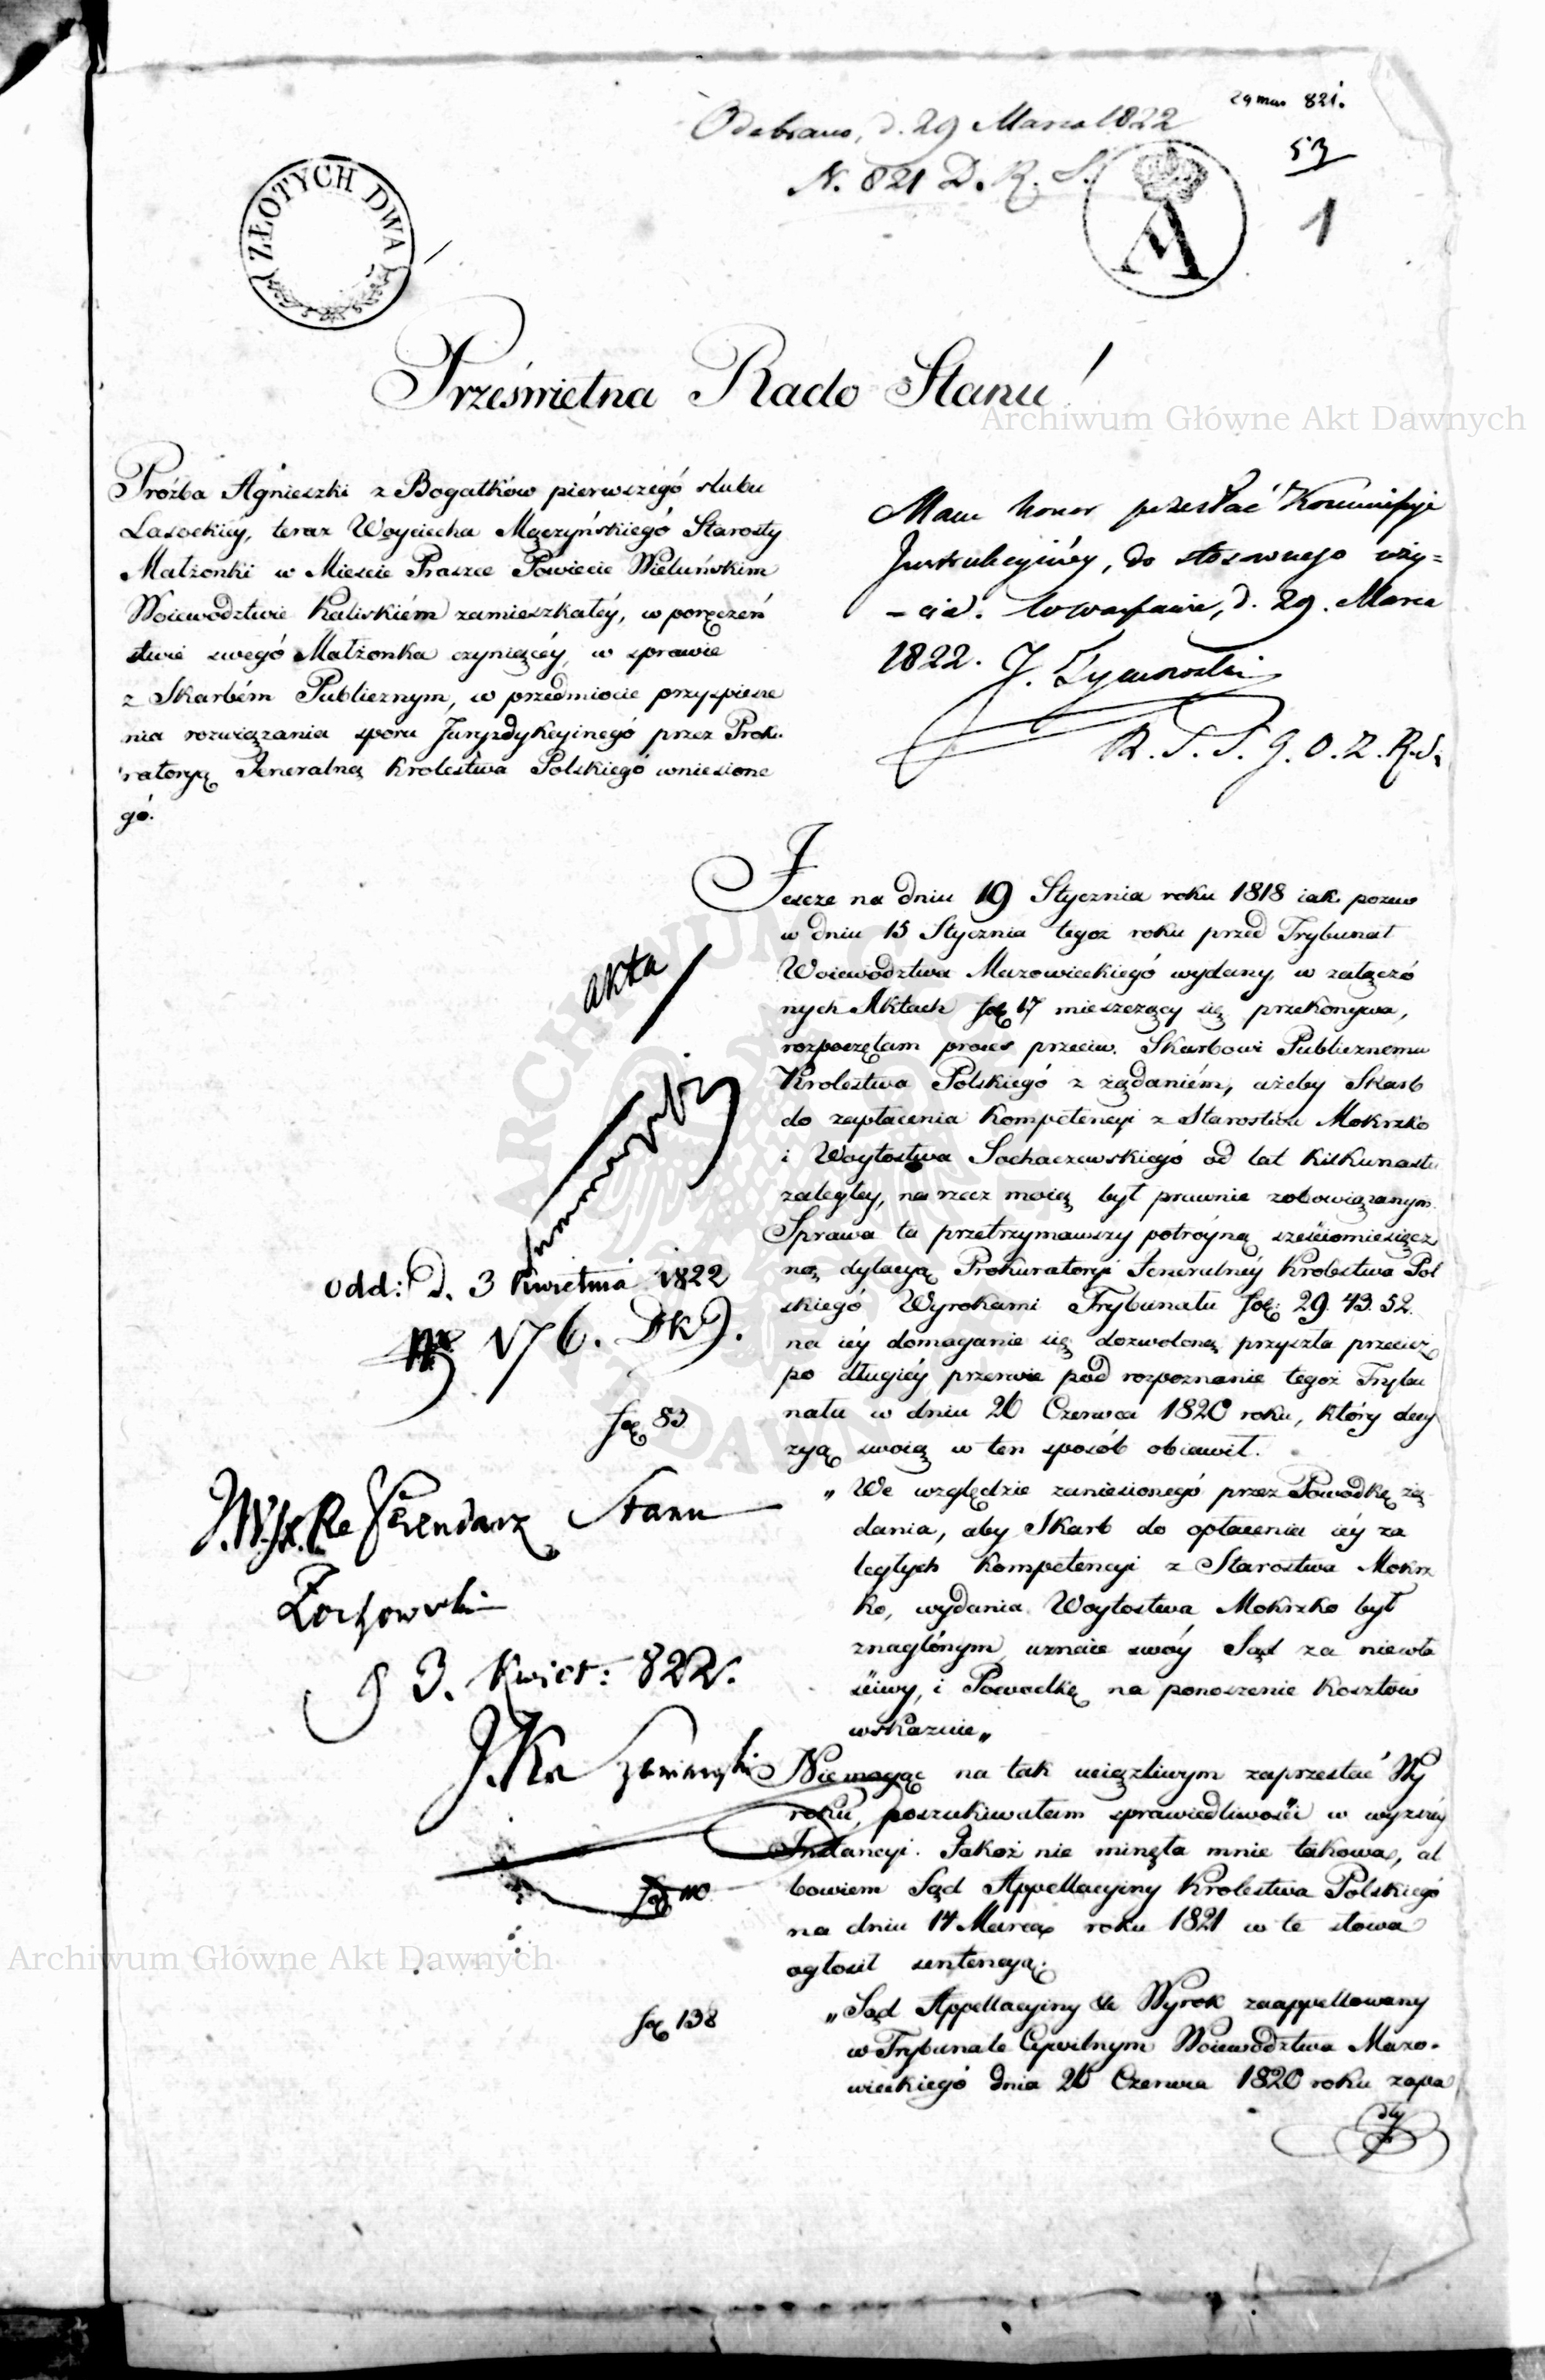 29 mar 821.
Odebrano, d. 29 Marca 1822
N. 821 D. R. S.
53
1
ZŁOTYCH DWA
A
Prześwietna Rado Stanu!
Archiwum Główne Akt Dawnych
Proźba Agnieszki z Bogatków pierwszégó ślubu
Lasockiéy, teraz Woyciecha Mączyńskiégó Starosty
Małżonki w Mieście Praszce Powiecie Wieluńskim
Woiewództwie Kaliskiém zamieszkałéy, w poręczeń
stwie swégó Małżonka czyniącéy, w sprawie
z Skarbém Publicznym, w przedmiocie przyspiesze
nia rozwiązania sporu Juryzdykcyinégó przez Prok.
ratoryą Jeneralną Krolestwa Polskiégó wniesione
gó.
Mam honor przesłać Kommissyi
Instrukcyinéy, do stosownego uży=
-cia. w Warszawie, d. 29. Marca
1822. J. Tymowski
R. S. S. J. O. Z. R. S.
Jescze na dniu 19 Stycznia roku 1818 iak pozew
w dniu 15 Stycznia tegoż roku przed Trybunał
Woiewództwa Mazowieckiégó wydany, w załączó
nych Aktach fol 17 mieszczący się przekonywa,
rozpoczęłam proces przeciw. Skarbowi Publicznemu
Krolestwa Polskiégó z żądaniém, ażeby Skarb
do zapłacenia Kompetencyi z Starostwa Mokrzko
i Woytostwa Sochaczewskiégó od lat kilkunastu
zaległey, na rzecz moią był prawnie zobowiązanym.
Sprawa ta przetrzymawszy potróyną sześciomiesięcz
ną dylacyą Prokuratoryi Jeneralnéy Krolestwa Pol
skiégó Wyrokami Trybunału fol: 29. 43. 52.
na iéy domaganie się dozwoloną, przyszła przecież
po długiéy przerwie pod rozpoznanie tegoż Trybu
nału w dniu 26 Czerwca 1820 roku, który decy
zyą swoią w ten sposób obiawił.
„We względzie zaniesionégó przez Powodkę żą
dania, aby Skarb do opłacenia iéy za
ległych Kompetencyi z Starostwa Mokrz
ko, wydania Woytostwa Mokrzko był
znaglónym, uznaie swóy Sąd za niewła
ściwy, i Powodkę na ponoszenie Kosztów
wskazuie„
Niemogąc na tak uciążliwym zaprzestać Wy
roku, poszukiwałam sprawiedliwości w wyższéy
Instancyi. Jakoż nie minęła mnie takowa, al
bowiem Sąd Appellacyiny Krolestwa Polskiégó
na dniu 14 Marca roku 1821 w te słowa
ogłosił sentencyą.
„Sąd Appellacyiny &c Wyrok zaappellowany
w Trybunale Cywilnym Woiewództwa Mazo-
wieckiégó dnia 26 Czerwca 1820 roku zapa
dły
akta
odd: D. 3 Kwietnia 1822
N 176. DKJ.
fol 83
J.W. Referendarz Stanu
Żochowski
d 3. Kwiet: 822.
fol 110
fol 138
Archiwum Główne Akt Dawnych